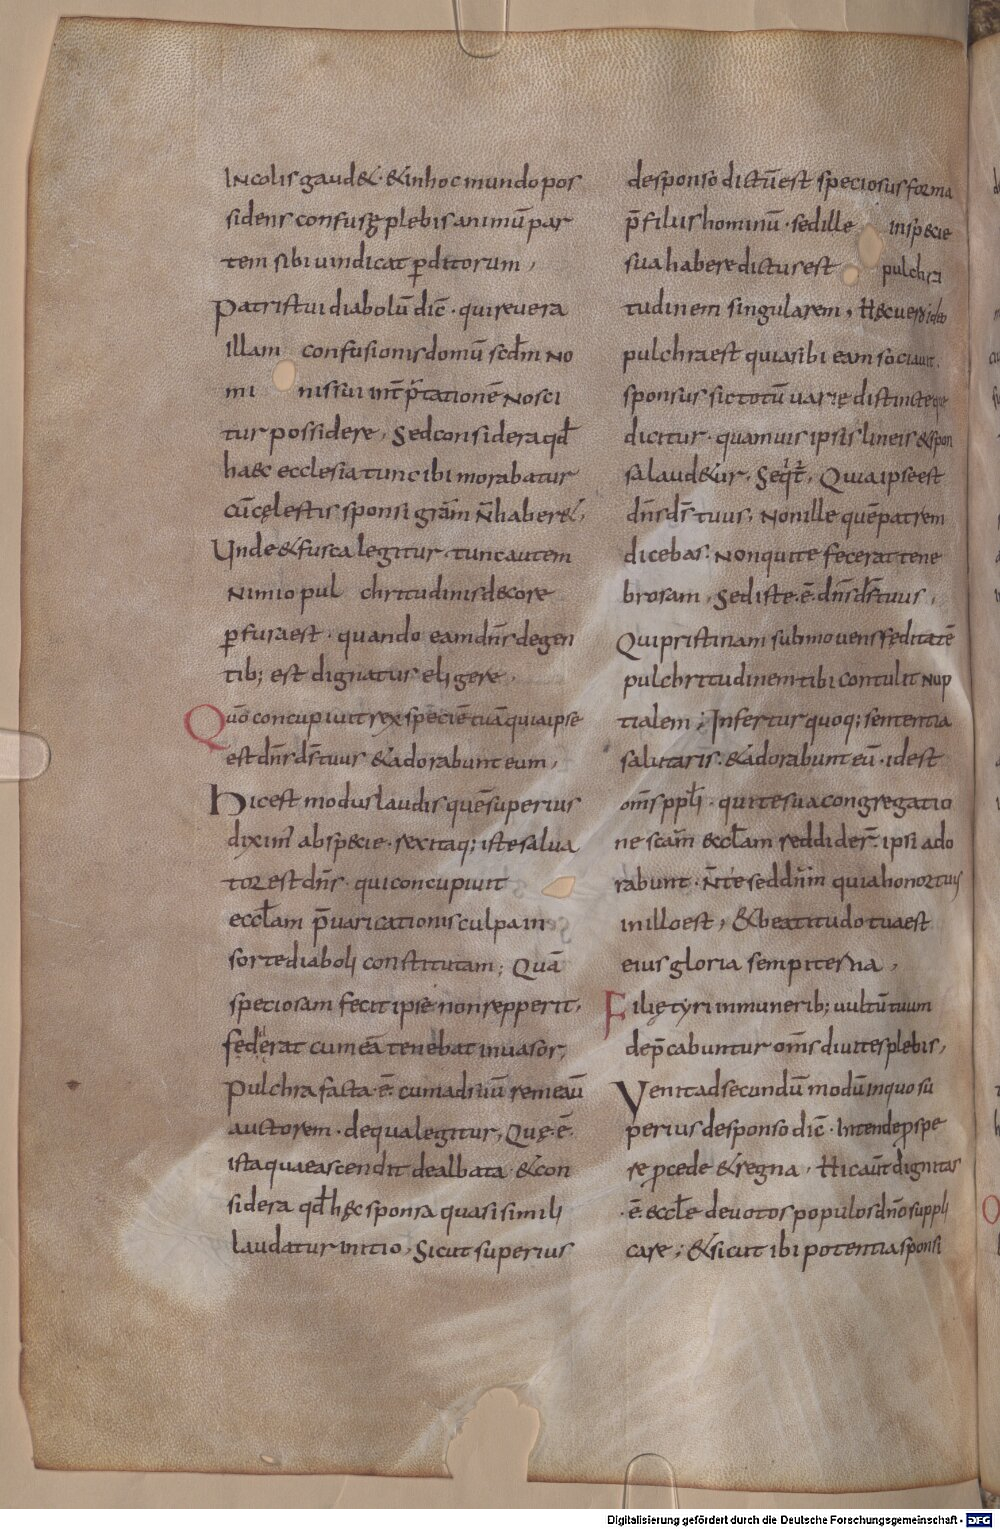 Incolis gaud&. &inhoc mundo pos
sidens confusę plebis animū par
tem sibi uindicat p̲ditorum,
Patris tui diabolū dic̄. qui reuera
illam confusionis domū scd̄m no
mi nis sui int̄p̄tationē nosci
tur possidere, Sed considera qd̄
haec ecclesia tunc ibi morabatur
cū cęlestis sponsi gr̄am n̄ haber&,
Unde & fusca legitur. tunc autem
nimio pul chritudinis decore
p̲fusa est. quando eam dn̄s de gen
tib; est dignatus eligere,
Quō concupiuit rex speciē tuā quia ipse
est dn̄s ds̄ tuus &adorabunt eum,
Hic est modus laudis quē superius
diximꝰ ab specie. rex itaq; iste salua
tor est dn̄s. qui concupiuit
eccl̄am p̄uaricationis culpa in
sorte diaboli constitutam; Quā
speciosam fecit ipse non repperit,
fęderat cum eā tenebat inuasor;
Pulchra facta. ē. cum ad suū remeau̅
auctorem. de qua legitur, Quę. ē.
ista quae ascendit dealbata. &con
sidera qd̄ hęc sponsa quasi simili
laudatur initio, Sicut superius
de sponso dictū est speciosus forma
p̄ filiis hominū. sed ille in specie
sua habere dictus est pulchri
tudinem singularem, Hęc uero ideo
pulchra est quia sibi eam sociauit.
sponsus sic totū uarie distincteque
dicitur. quamuis ipsis lineis &spon
sa laud&ur, Seqt̄, Quia ipse est
dn̄s ds̄ tuus, Non ille quē patrem
dicebas. Non qui te fecerat tene
brosam, Sed iste. ē. dn̄s ds̄ tuus,
Qui pristinam submouens fęditatē
pulchritudinem tibi contulit nup
tialem; Infertur quoq; sententia
salutaris. &adorabunt eū. idest
om̄s pp̄li. qui te sua congregatio
ne sc̄am eccl̄am reddider̄. ipsi ado
rabunt. n̄ te sed dn̄m quia honor tuus
in illo est, &beatitudo tua est
eius gloria sempiterna,
Filię tyri in munerib; uultū tuum
dep̄cabuntur om̄s diuites plebis,
Venit ad secundū modū in quo su
perius de sponso dic̄. Intende prospe
re pcede &regna, Hic aūt dignitas
. ē. eccl̄e deuotos populos dn̄o suppli
care; &sicut ibi potentia sponsi
Digitalisierung gefördert durch die Deutsche Forschungsgemeinschaft - DFG